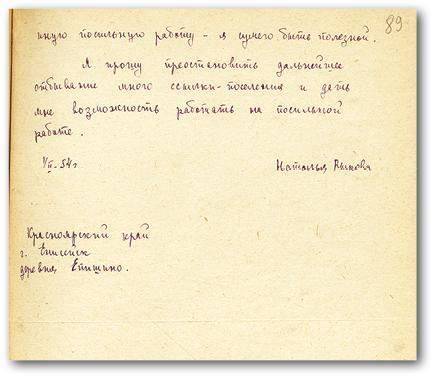 89
иную посильную работу - я сумею быть полезной.
Я прошу приостановить дальнейшее
отбывание мною ссылки-поселения и дать
мне возможность работать на посильной
работе.
1/II-54г Наталья Рыкова
Красноярский край
г. Енисейск
деревня Епишино.